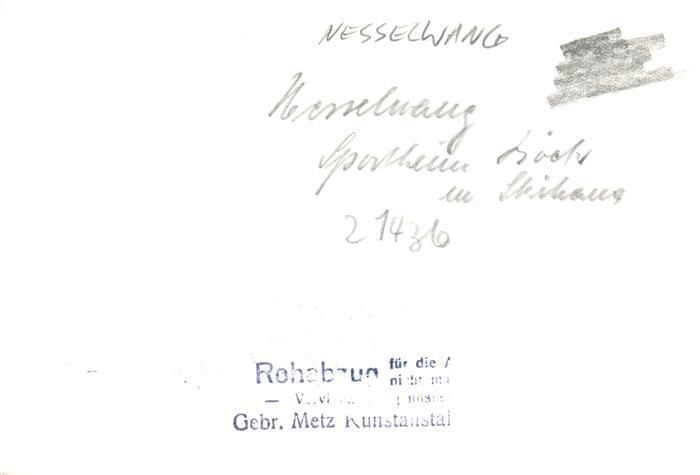 NESSELWANG
Nesselwang
Sportheim Böck
m Skihang
21436
Rohabzug für die A
nicht
—
Gebr. Metz Kunstanstal